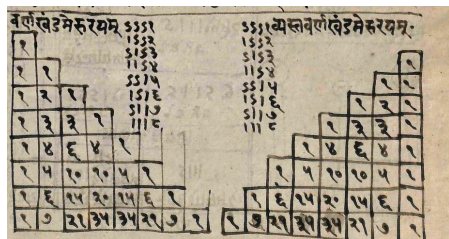 वर्णखंडमेरुरयम्
१
१ १
१ २ १
१ ३ ३ १
१ ४ ६ ४ १
१ ५ १० १० ५ १
१ ६ १५ २० १५ ६ १
१ ७ २१ ३५ ३५ २१ ७ १
ऽऽऽ१
।ऽऽ२
ऽ।ऽ३
।।ऽ४
ऽऽ।५
।ऽ।६
ऽ।।७
।।।८
ऽऽऽ१
।ऽऽ२
ऽ।ऽ३
।।ऽ४
ऽऽ।५
।ऽ।६
ऽ।।७
।।।८
व्यस्तवर्णखंडमेरुरयम्
१
१ १
१ २ १
१ ३ ३ १
१ ४ ६ ४ १
१ ५ १० १० ५ १
१ ६ १५ २० १५ ६ १
१ ७ २१ ३५ ३५ २१ ७ १